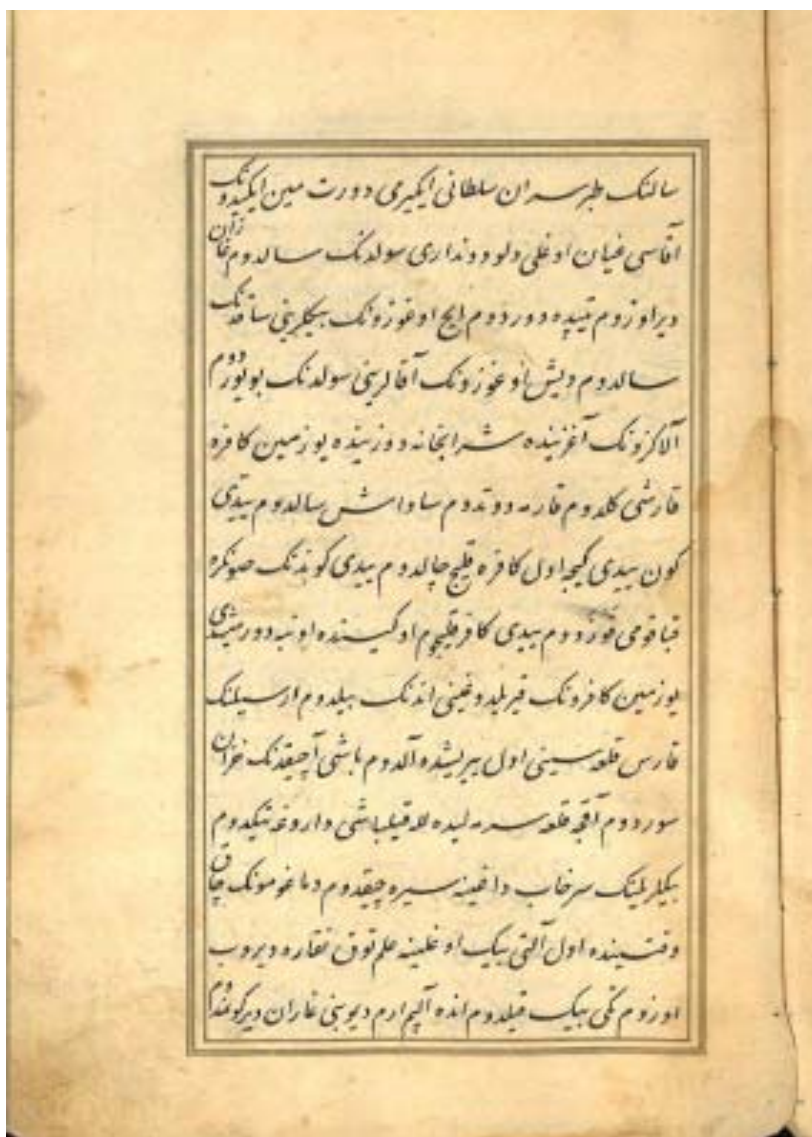 سالنک طبرسران سلطانی ایکیرمی دورت مین ایکیدونک
آقاسی غیان اوغلی دلو دونداری سولدنک سالدوم غازان
دیر اوزوم تیپه دوردوم ایچ اوغوزونک بیکلرینی ساقدنک
سالدوم دیش اوغوزونک آقالرینی سولدنک بویوردوم
آلاکزونک آغزینده شرابخانه دوزینده یوزمین کافره
قارشی کلدوم قارمه دوتدوم ساواش سالدوم ییدی
کون ییدی کیجه اول کافره قلیچ چالدوم ییدی کوندنک صونکره
قبا قومی قوزدوم ییدی کافر قلیچوم اوکینده اونبه دورمیشدی
یوزمین کافرونک قیریلدوغینی اندنک بیلدوم ارسیلنک
قارس قلعه سینی اول یریشده آلدوم باشی آچیقدنک خزان
سوردوم آقچه قلعه سرمه لیده قیلباشی داروغه تیکدوم
بیکلربیکنک سرخاب داغینه سیره چیقدوم دماغومونک چاق
وقتینده اول آلتی بیک اوغلینه علم توق نقاره ویروب
اوزوم کمی بیک قیلدوم انده آلپم ارم دیوبنی غازان دیر کونندوم